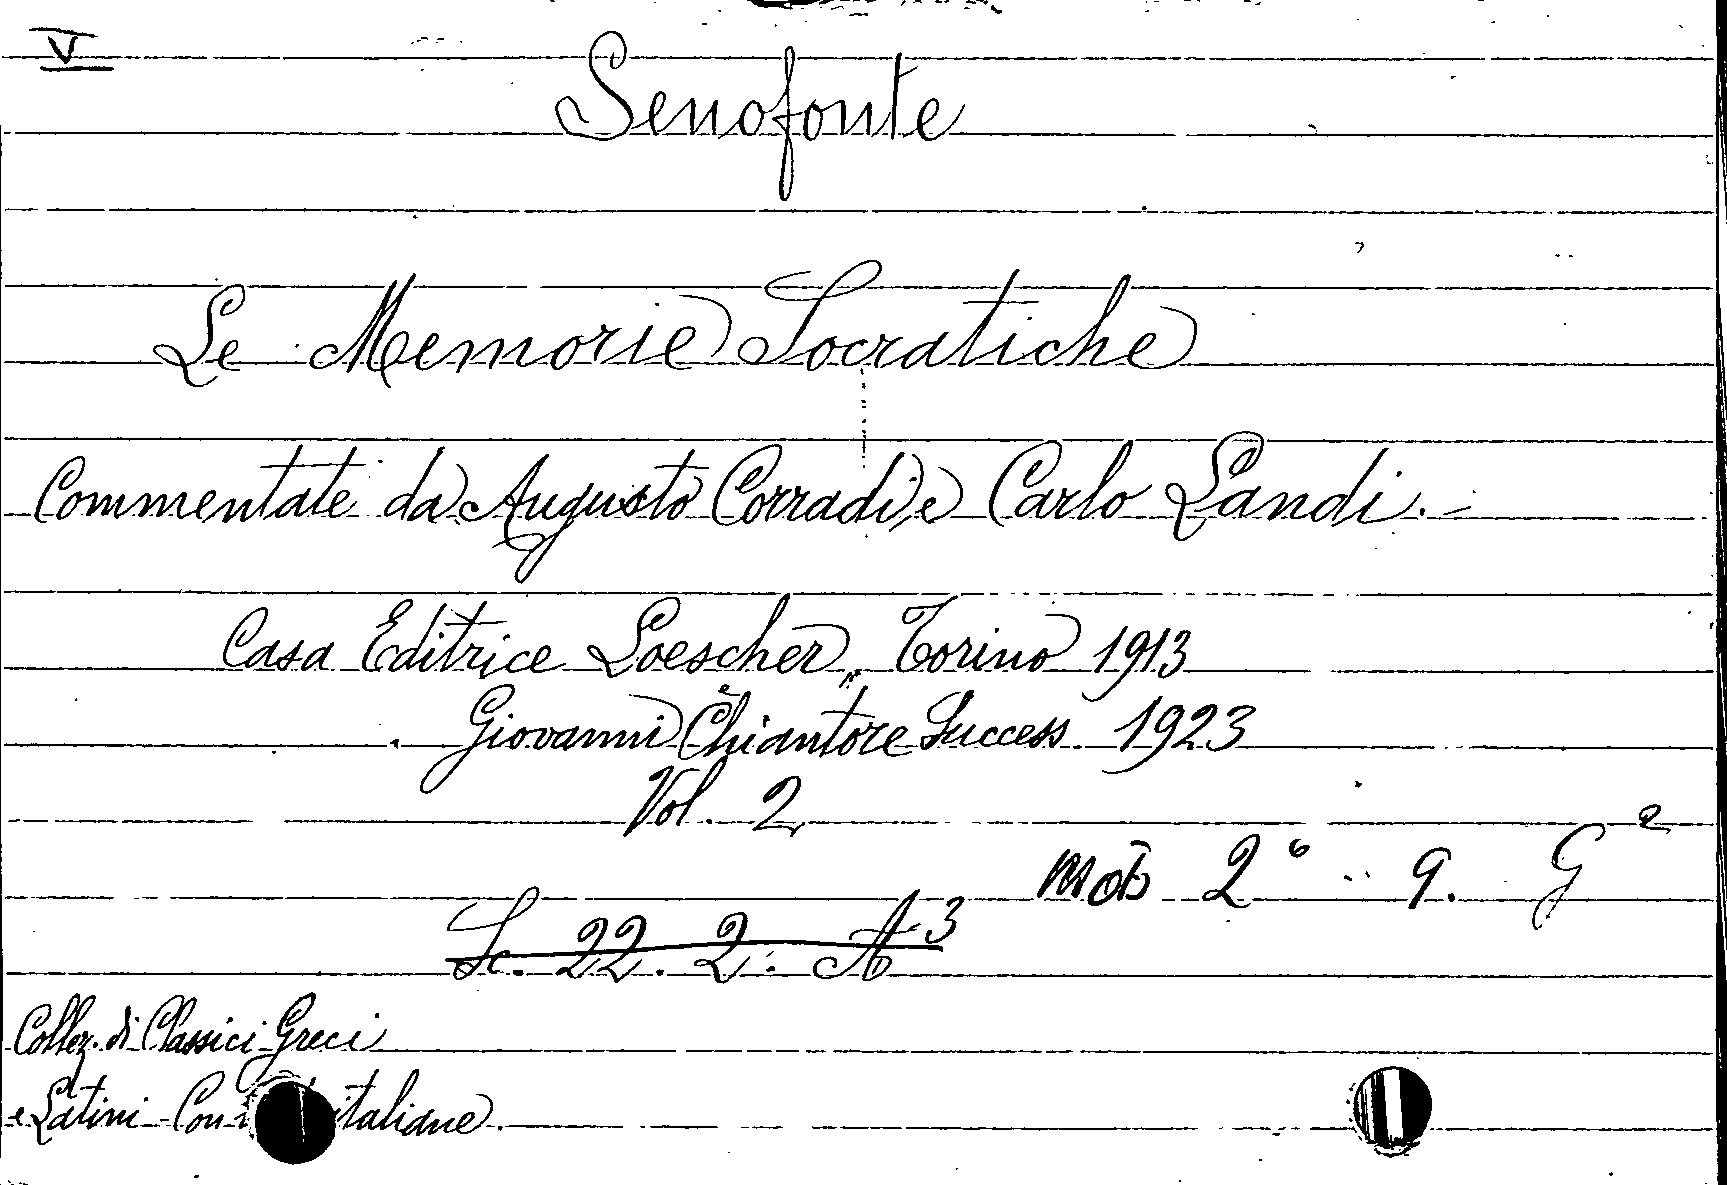 V
Senofonte
Le Memorie Socratiche
Commentate da Augusto Corradi e Carlo Landi.-
Casa Editrice Loescher, Torino 1913
Giovanni Chiantore Success. 1923
Vol. 2
2° 9. G²
Sc. 22. 2. A³
Collez. di Classici Greci
e Latini - Con italiane.